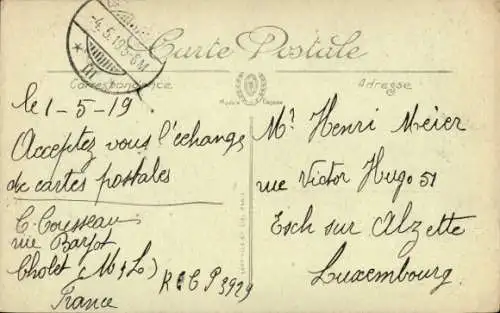 -4.5.19 8-9M
Carte Postale
Correspondance
Adresse
le 1-5-19
Acceptez vous l'échange
de cartes postales
C. Cousseau
rue Barjot
Cholet (M & L)
France
R & C P 3929
Mr Henri Meier
rue Victor Hugo 51
Esch sur Alzette
Luxembourg.